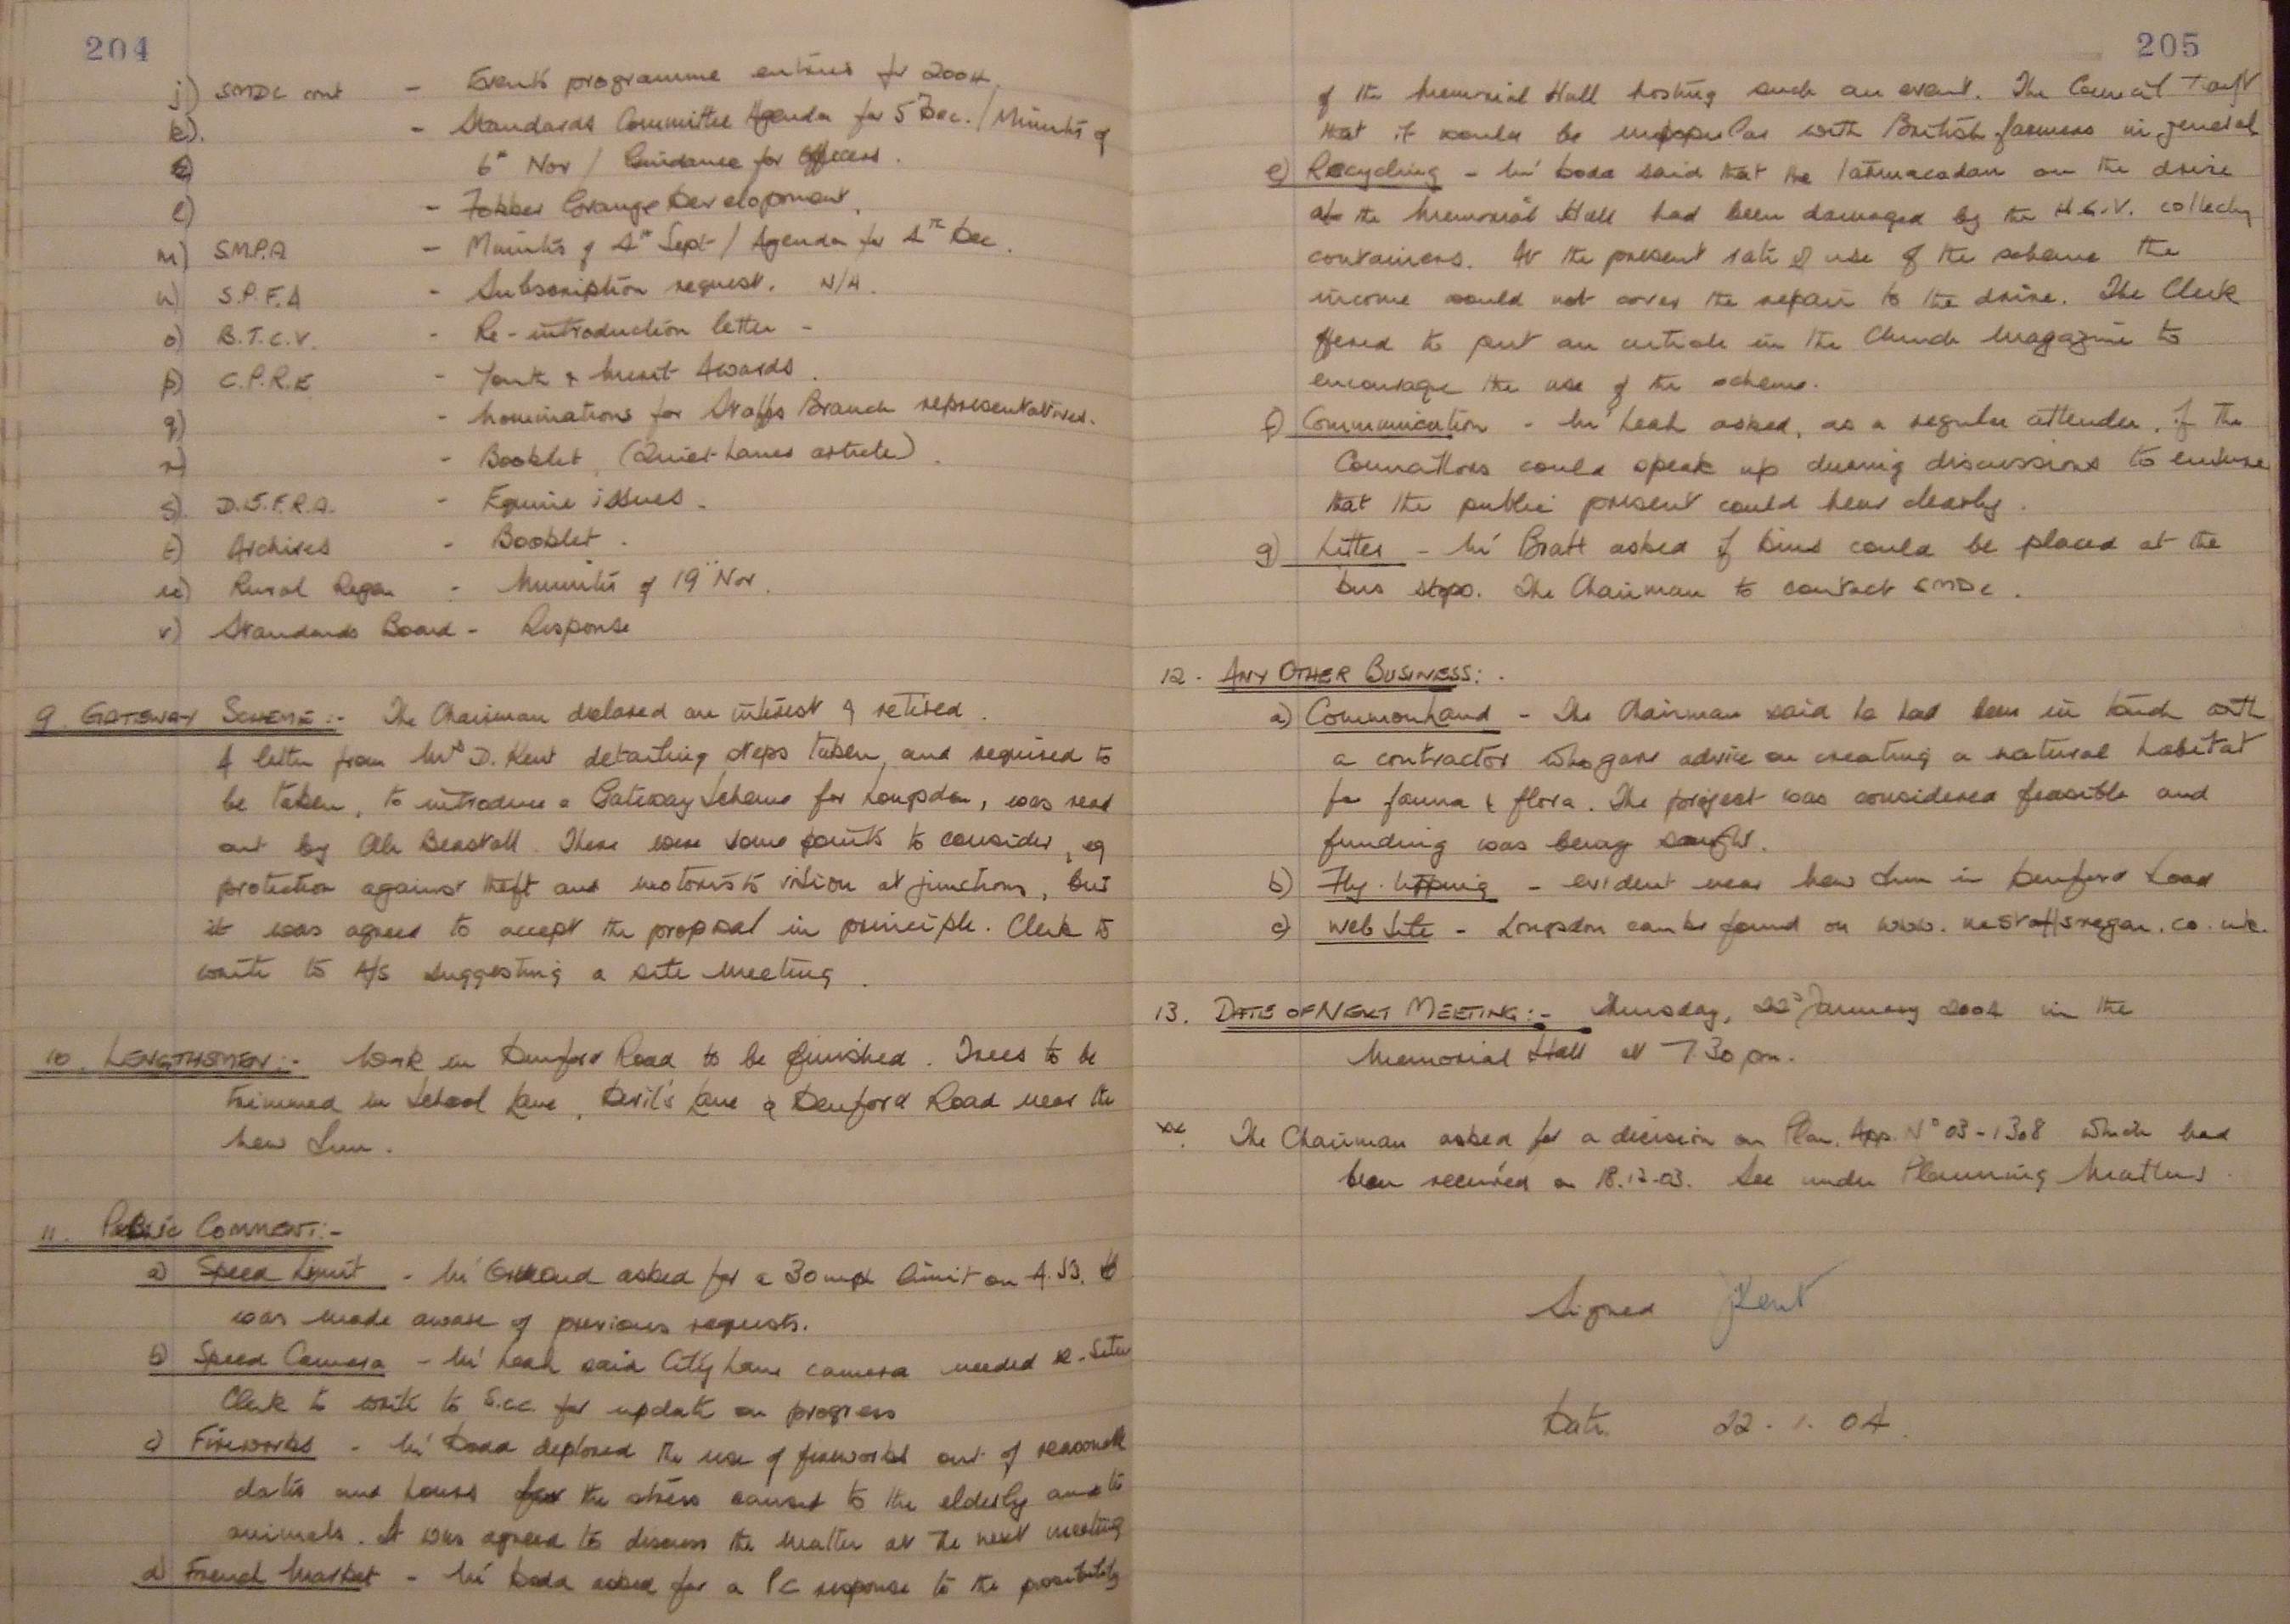 204
j) SMDC cont - Events programme entries for 2004
k). - Standards Committee Agenda for 5th Dec. / Minutes of
6th Nov / Guidance for Officers.
l) - Grange Development.
m) S.M.P.A - Minutes of 4th Sept / Agenda for 4th Dec.
n) S.P.F.A - Subscription request. N/A.
o) B.T.C.V. - Re-introduction letter -
p) C.P.R.E - Youth & Merit Awards.
q) - Nominations for Staffs Branch representatives.
r) - Booklet (Quiet Lanes article).
s) D.E.F.R.A. - Equine issues.
t) Archives - Booklet.
u) Rural Regen - Minutes of 19th Nov.
v) Standards Board - Response
9. GATEWAY SCHEME:- The Chairman declared an interest & retired.
A letter from Mrs D. Kent detailing steps taken, and required to
be taken, to introduce a Gateway Scheme for Longsdon, was read
out by Cllr Berstall. There were some points to consider, eg
protection against theft and motorists vision at junctions, but
it was agreed to accept the proposal in principle. Clerk to
write to A/S suggesting a site meeting.
10. LENGTHSMEN:- Work in Denford Road to be finished. Trees to be
trimmed in School Lane, Devil's Lane & Denford Road near the
New Inn.
11. PUBLIC COMMENT:-
a) Speed Limit - Mr asked for a 30 mph limit on A.53.
was made aware of previous requests.
b) Speed Camera - Mr Leah said City Lane camera needed re-siting
Clerk to write to S.C.C. for update on progress
c) Fireworks - Mr Dodd deplored the use of fireworks out of reasonable
dates and hours for the stress caused to the elderly and to
animals. It was agreed to discuss the matter at the next meeting
d) French Market - Mr Dodd asked for a PC response to the possibility
205
of the Memorial Hall hosting such an event. The Council felt
that it would be unpopular with British farmers in general
e) Recycling - Mr Dodd said that the tarmacadam on the drive
at the Memorial Hall had been damaged by the H.G.V. collecting
containers. At the present rate of use of the scheme the
income would not cover the repair to the drive. The Clerk
offered to put an article in the Church Magazine to
encourage the use of the scheme.
f) Communication - Mr Leah asked, as a regular attender, if the
Councillors could speak up during discussions to ensure
that the public present could hear clearly.
g) Litter - Mr Bratt asked if bins could be placed at the
bus stops. The Chairman to contact SMDC.
12. ANY OTHER BUSINESS:.
a) Common Land - The Chairman said he had been in touch with
a contractor who gave advice on creating a natural habitat
for fauna & flora. The project was considered feasible and
funding was being sought.
b) Fly-tipping - evident near New Inn in Denford Road
c) Web Site - Longsdon can be found on www.nestaffsregen.co.uk.
13. DATE OF NEXT MEETING:- Thursday, 22nd January 2004 in the
Memorial Hall at 7.30pm.
**. The Chairman asked for a decision on Plan. App. No 03-1308 which had
been received on 18.12.03. See under Planning Matters.
Signed JKent
Date 22.1.04.